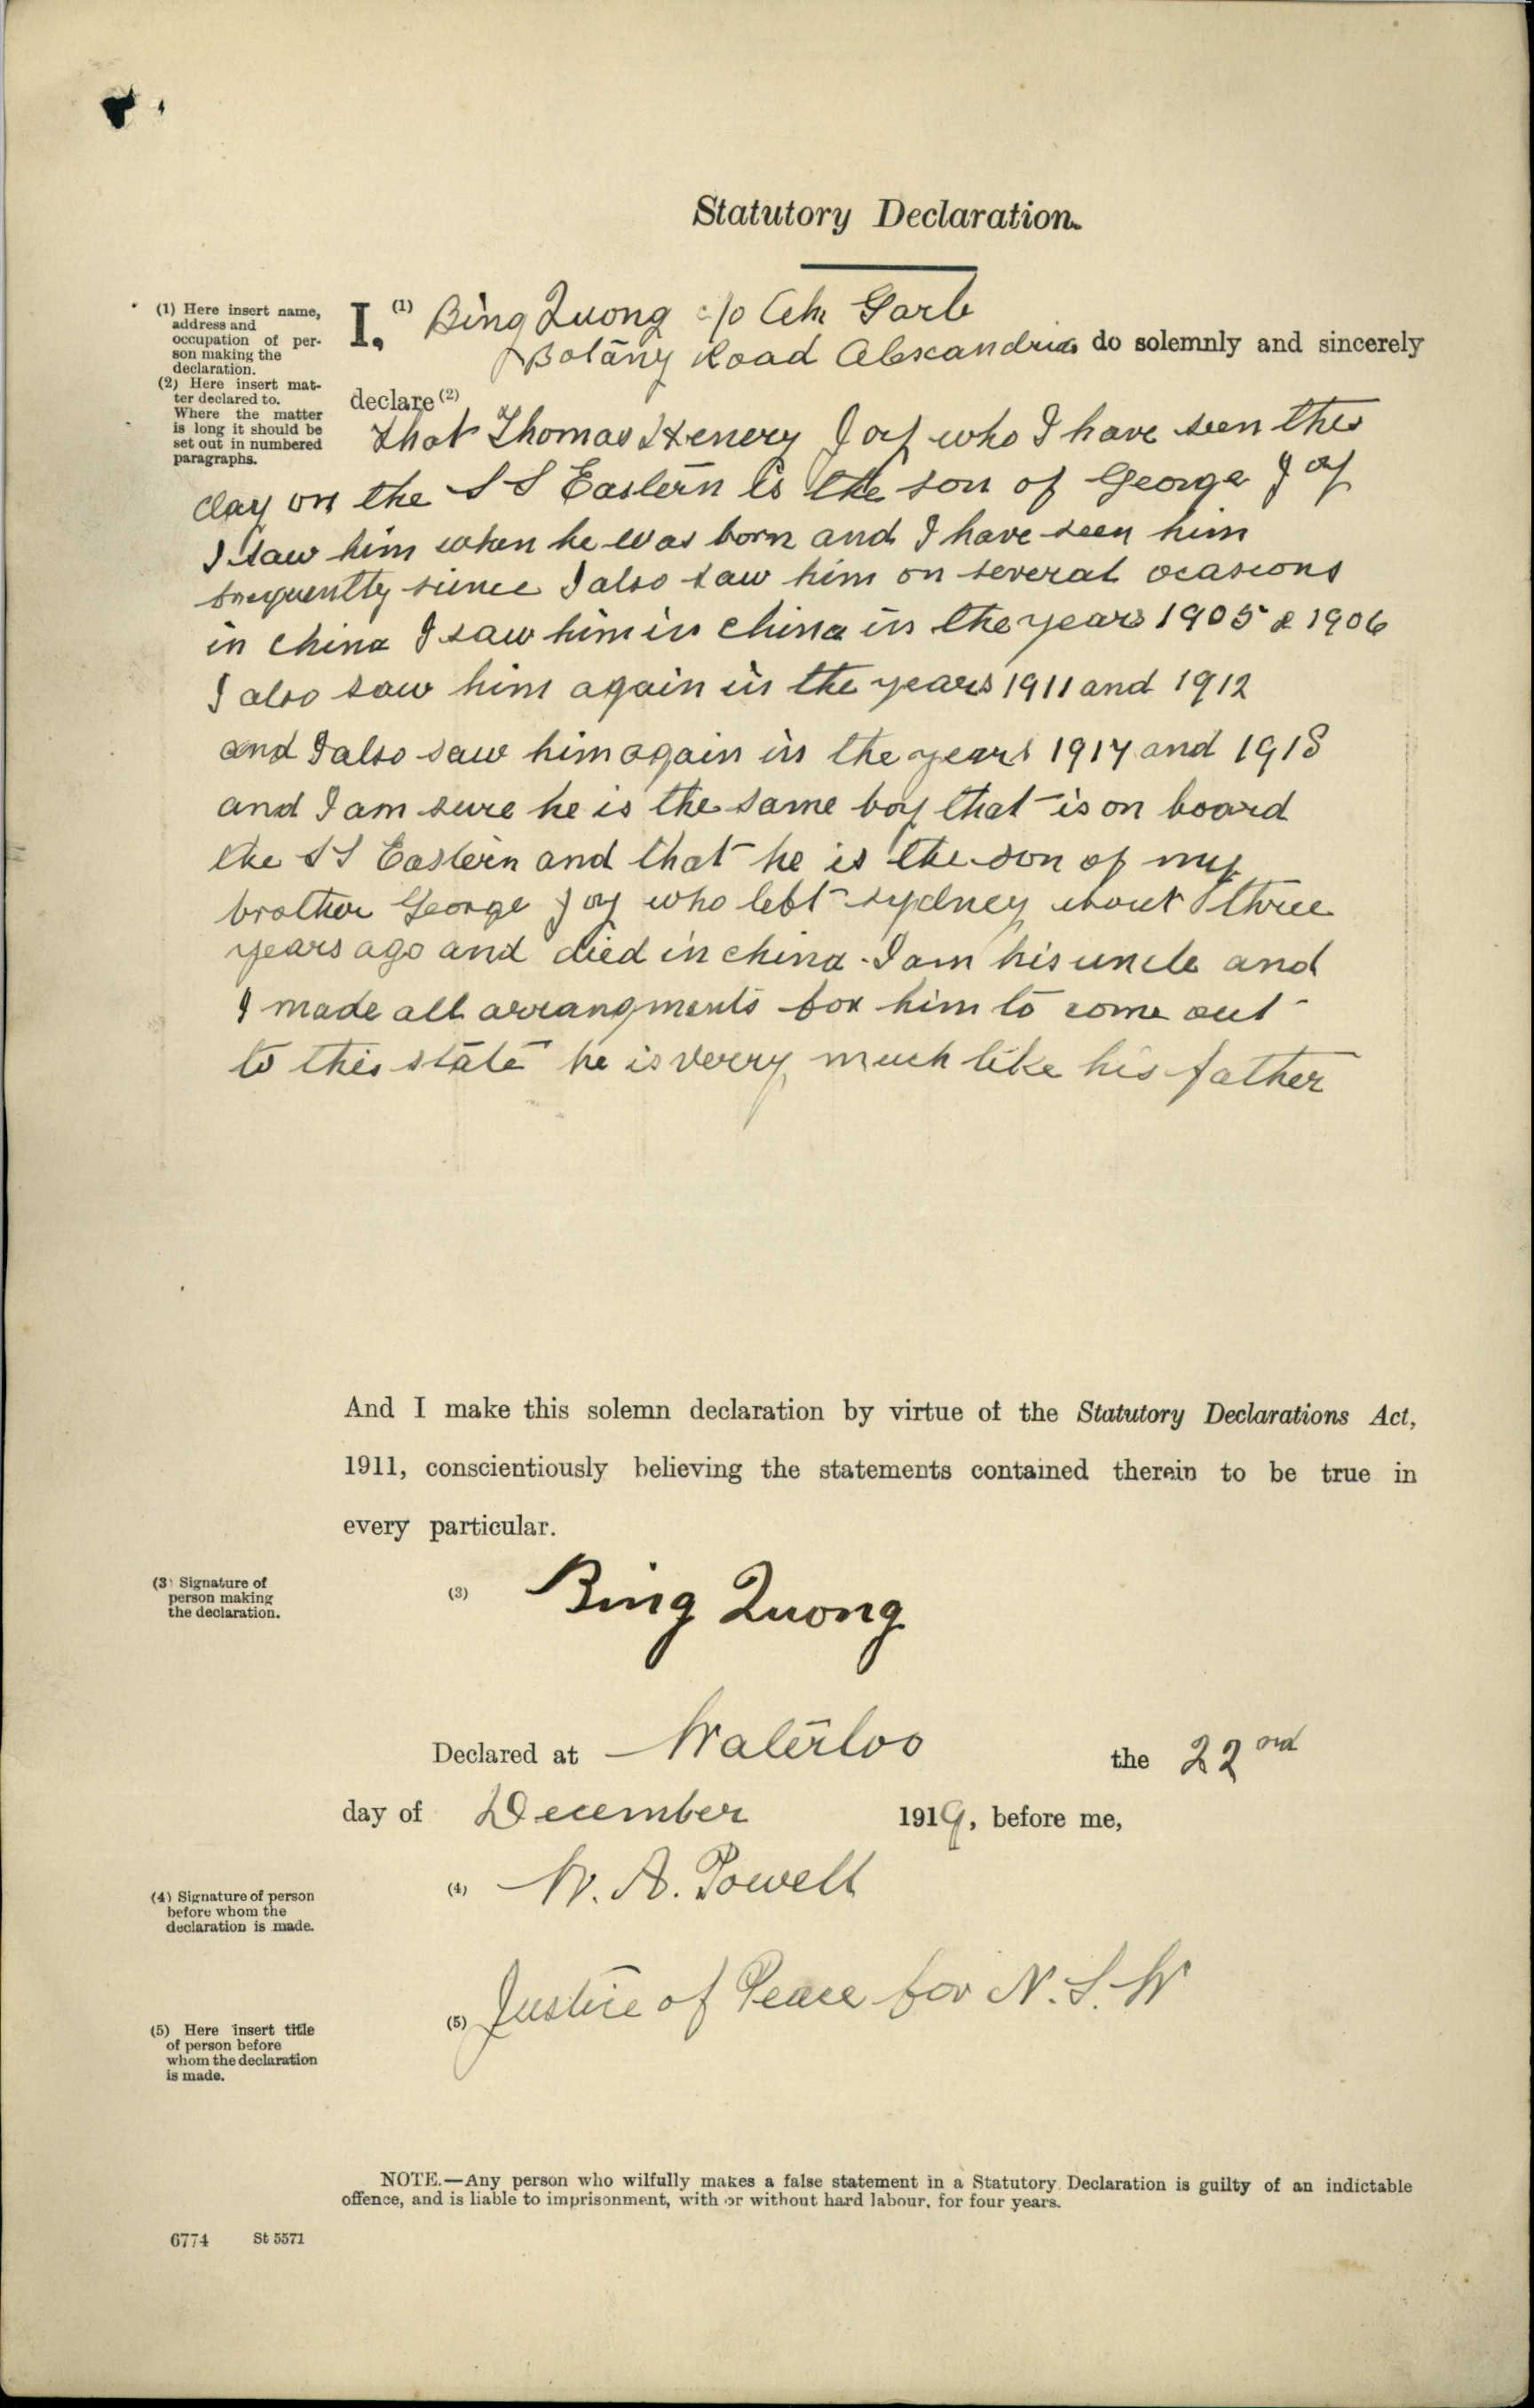 Statutory Declaration.
(1) Here insert name,
address and
occupation of per-
son making the
declaration.
(2) Here insert mat-
ter declared to.
Where the matter
is long it should be
set out in numbered
paragraphs.
I, (1) Bing Quong c/o Ah Garb
Botany Road Alexandria do solemnly and sincerely
declare (2)
that Thomas Henery Joy who I have seen this
day on the S S Eastern is the son of George Joy
I saw him when he was born and I have seen him
frequently since I also saw him on several ocasions
in China I saw him in China in the years 1905 & 1906
I also saw him again in the years 1911 and 1912
and I also saw him again in the years 1917 and 1918
and I am sure he is the same boy that is on board
the SS Eastern and that he is the son of my
brother George Joy who left Sydney about three
years ago and died in China. I am his uncle and
I made all arrangments for him to come out
to this state he is verry much like his father
And I make this solemn declaration by virtue of the Statutory Declarations Act,
1911, conscientiously believing the statements contained therein to be true in
every particular.
(3) Signature of
person making
the declaration.
(3) Bing Quong
Declared at Waterloo the 22nd
day of December 1919, before me,
(4) Signature of person
before whom the
declaration is made.
(4) W. A. Powell
(5) Here insert title
of person before
whom the declaration
is made.
(5) Justice of Peace for N. S. W
NOTE.—Any person who wilfully makes a false statement in a Statutory Declaration is guilty of an indictable
offence, and is liable to imprisonment, with or without hard labour, for four years.
6774 St 5571